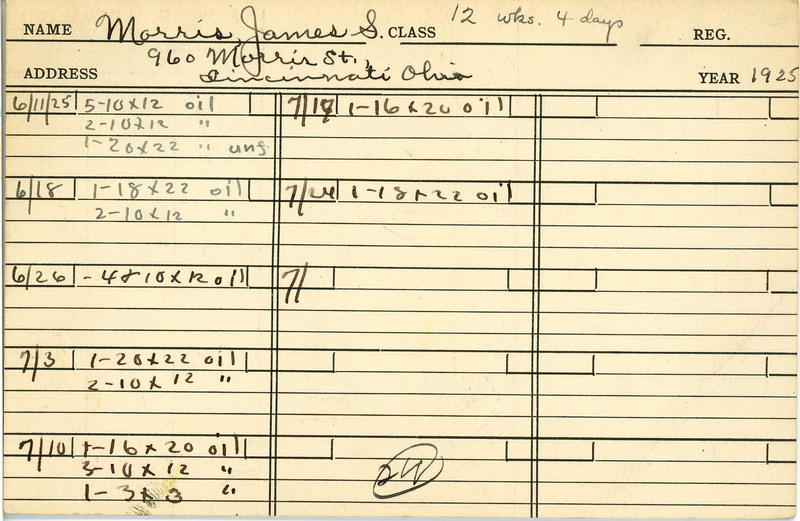 NAME Morris, James S. CLASS 12 wks. 4 days REG.
960 Morris St.,
ADDRESS Cincinnati Ohio YEAR 1925
6/11/25 5-10x12 oil
2-10x12 "
1-20x22 " unf
6/18 1-18x22 oil
2-10x12 "
6/26 -48 10x12 oil
7/3 1-20x22 oil
2-10x12 "
7/10 1-16x20 oil
3-10x12 "
1-3x3 "
7/17 1-16x20 oil
7/24 1-18x22 oil
7/